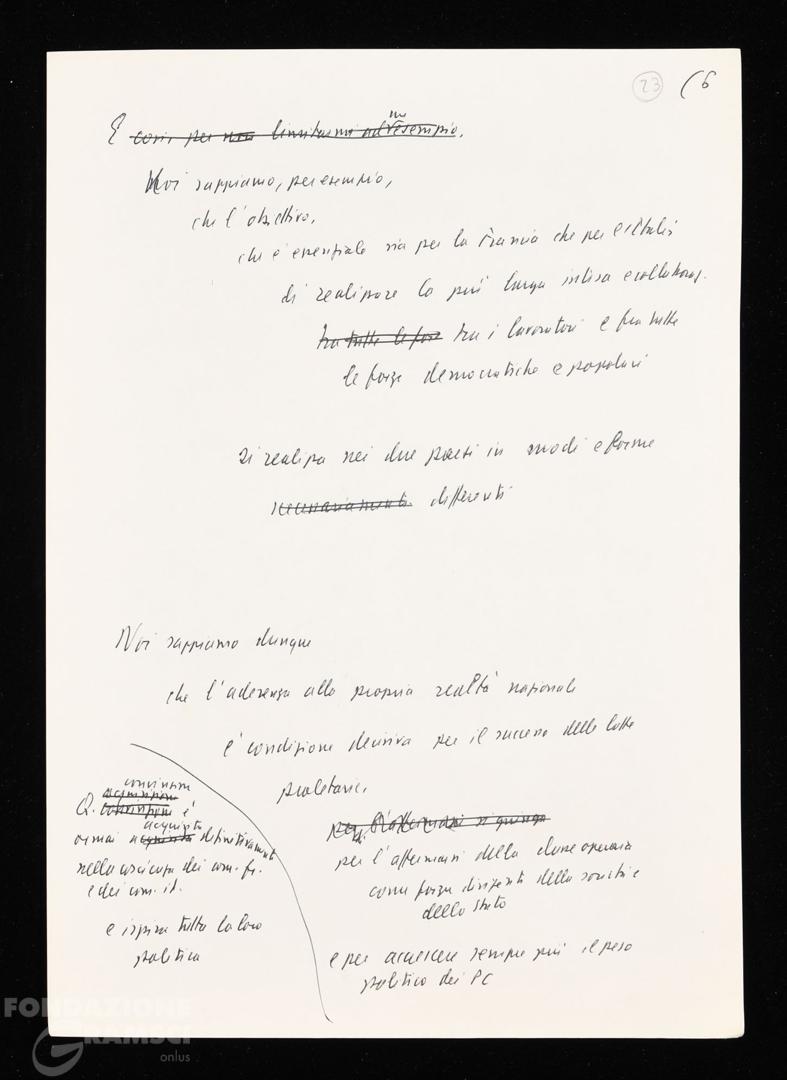 23 (6
E così, per non limitarmi ad un esempio,
Noi sappiamo, per esempio,
che l'obiettivo,
che è essenziale sia per la Francia che per l'Italia
di realizzare la più larga intesa e collaboraz.
tra tutte le forze tra i lavoratori e fra tutte
le forze democratiche e popolari
si realizza nei due paesi in modi e forme
necessariamente differenti
Noi sappiamo dunque
che l'aderenza alla propria realtà nazionale
è condizione decisiva per il successo delle lotte
proletarie,
per l'affermarsi della classe operaia
come forza dirigente della società e
dello Stato
e per accrescere sempre più il peso
politico dei PC
convinzione
acquisizione
Q. convinzione è
acquisita
ormai acquisita definitivamente
nella coscienza dei com. fr.
e dei com. it.
e ispira tutta la loro
politica
FONDAZIONE
GRAMSCI
onlus